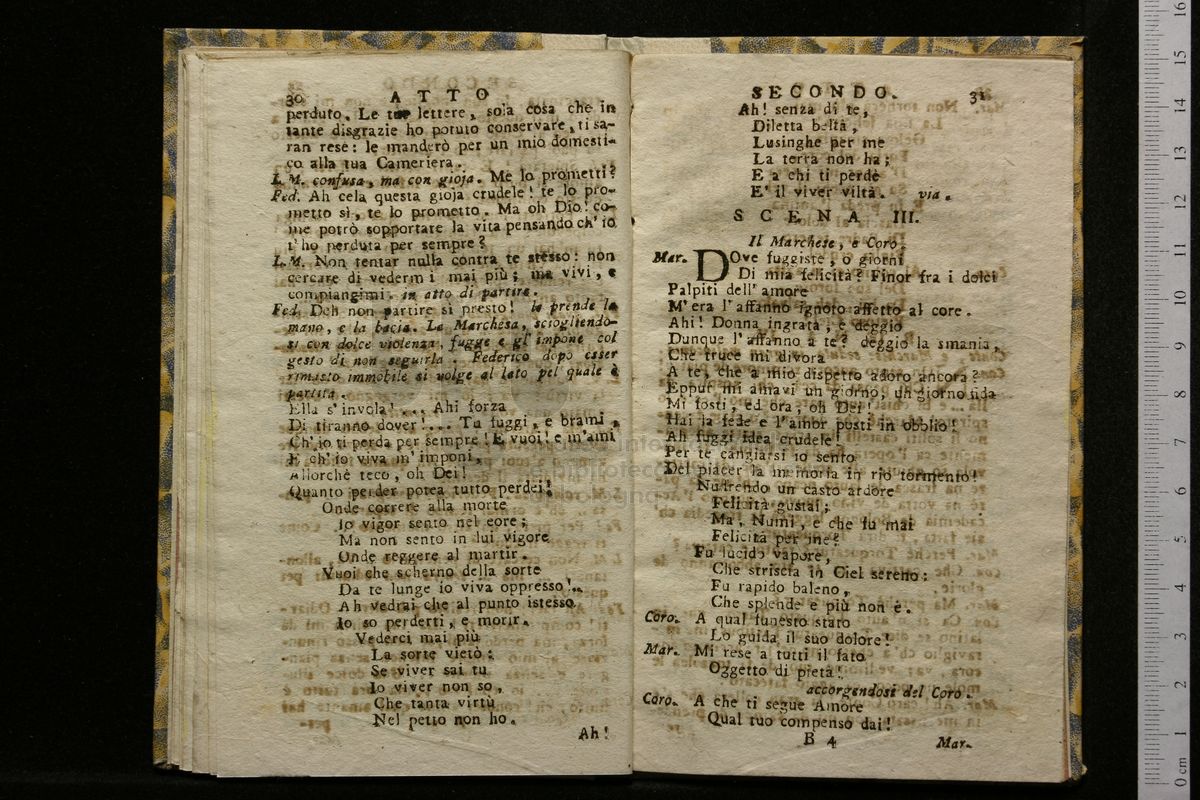 30 ATTO
perduto. Le tue lettere, sola cosa che in
tante disgrazie ho potuto conservare, ti sa-
ran rese: le manderò per un mio domesti-
co alla tua Cameriera.
L.M. confusa, ma con gioja. Me lo prometti?
Fed. Ah cela questa gioja crudele! te lo pro-
metto sì, te lo prometto. Ma oh Dio! co-
me potrò sopportare la vita pensando ch' io
t'ho perduta per sempre?
L.M. Non tentar nulla contra te stesso: non
cercare di vedermi mai più; ma vivi, e
compiangimi. in atto di partire.
Fed. Deh non partire sì presto! le prende la
mano, e la bacia. La Marchesa, sciogliendo-
si con dolce violenza, fugge e gl' impone col
gesto di non seguirla. Federico dopo esser
rimasto immobile si volge al lato pel quale è
partita.
Ella s'invola!.... Ahi forza
Di tiranno dover!... Tu fuggi, e brami,
Ch' io ti perda per sempre! E vuoi! e m'ami
E ch' io viva m' imponi,
Allorchè teco, oh Dei!
Quanto perder potea tutto perdei!
Onde correre alla morte
Io vigor sento nel core;
Ma non sento in lui vigore
Onde reggere al martir.
Vuoi che scherno della sorte
Da te lunge io viva oppresso!..
Ah vedrai che al punto istesso
Io so perderti, e morir.
Vederci mai più
La sorte vietò:
Se viver sai tu
Io viver non so,
Che tanta virtù
Nel petto non ho.
Ah!
SECONDO. 31
Ah! senza di te,
Diletta beltà,
Lusinghe per me
La terra non ha;
E a chi ti perdè
E' il viver viltà. via.
SCENA III.
Il Marchese, e Coro.
Mar. DOve fuggiste, o giorni
Di mia felicità? Finor fra i dolci
Palpiti dell' amore
M'era l'affanno ignoto affetto al core.
Ahi! Donna ingrata, e deggio
Dunque l'affanno a te? deggio la smania,
Che truce mi divora
A te, che a mio dispetto adoro ancora?
Eppur mi amavi un giorno, un giorno fida
Mi fosti, ed ora, oh Dei!
Hai la fede e l'amor posti in obblio!
Ah fuggi idea crudele!
Per te cangiarsi io sento
Del piacer la memoria in rio tormento!
Nudrendo un casto ardore
Felicità gustai;
Ma, Numi, e che fu mai
Felicità per me?
Fu lucido vapore,
Che striscia in Ciel sereno:
Fu rapido baleno,
Che splende e più non è.
Coro. A qual funesto stato
Lo guida il suo dolore!
Mar. Mi rese a tutti il fato
Oggetto di pietà!
accorgendosi del Coro.
Coro. A che ti segue Amore
Qual tuo compenso dai!
B 4 Mar.
16
15
14
13
12
11
10
9
8
7
6
5
4
3
2
1
0 cm